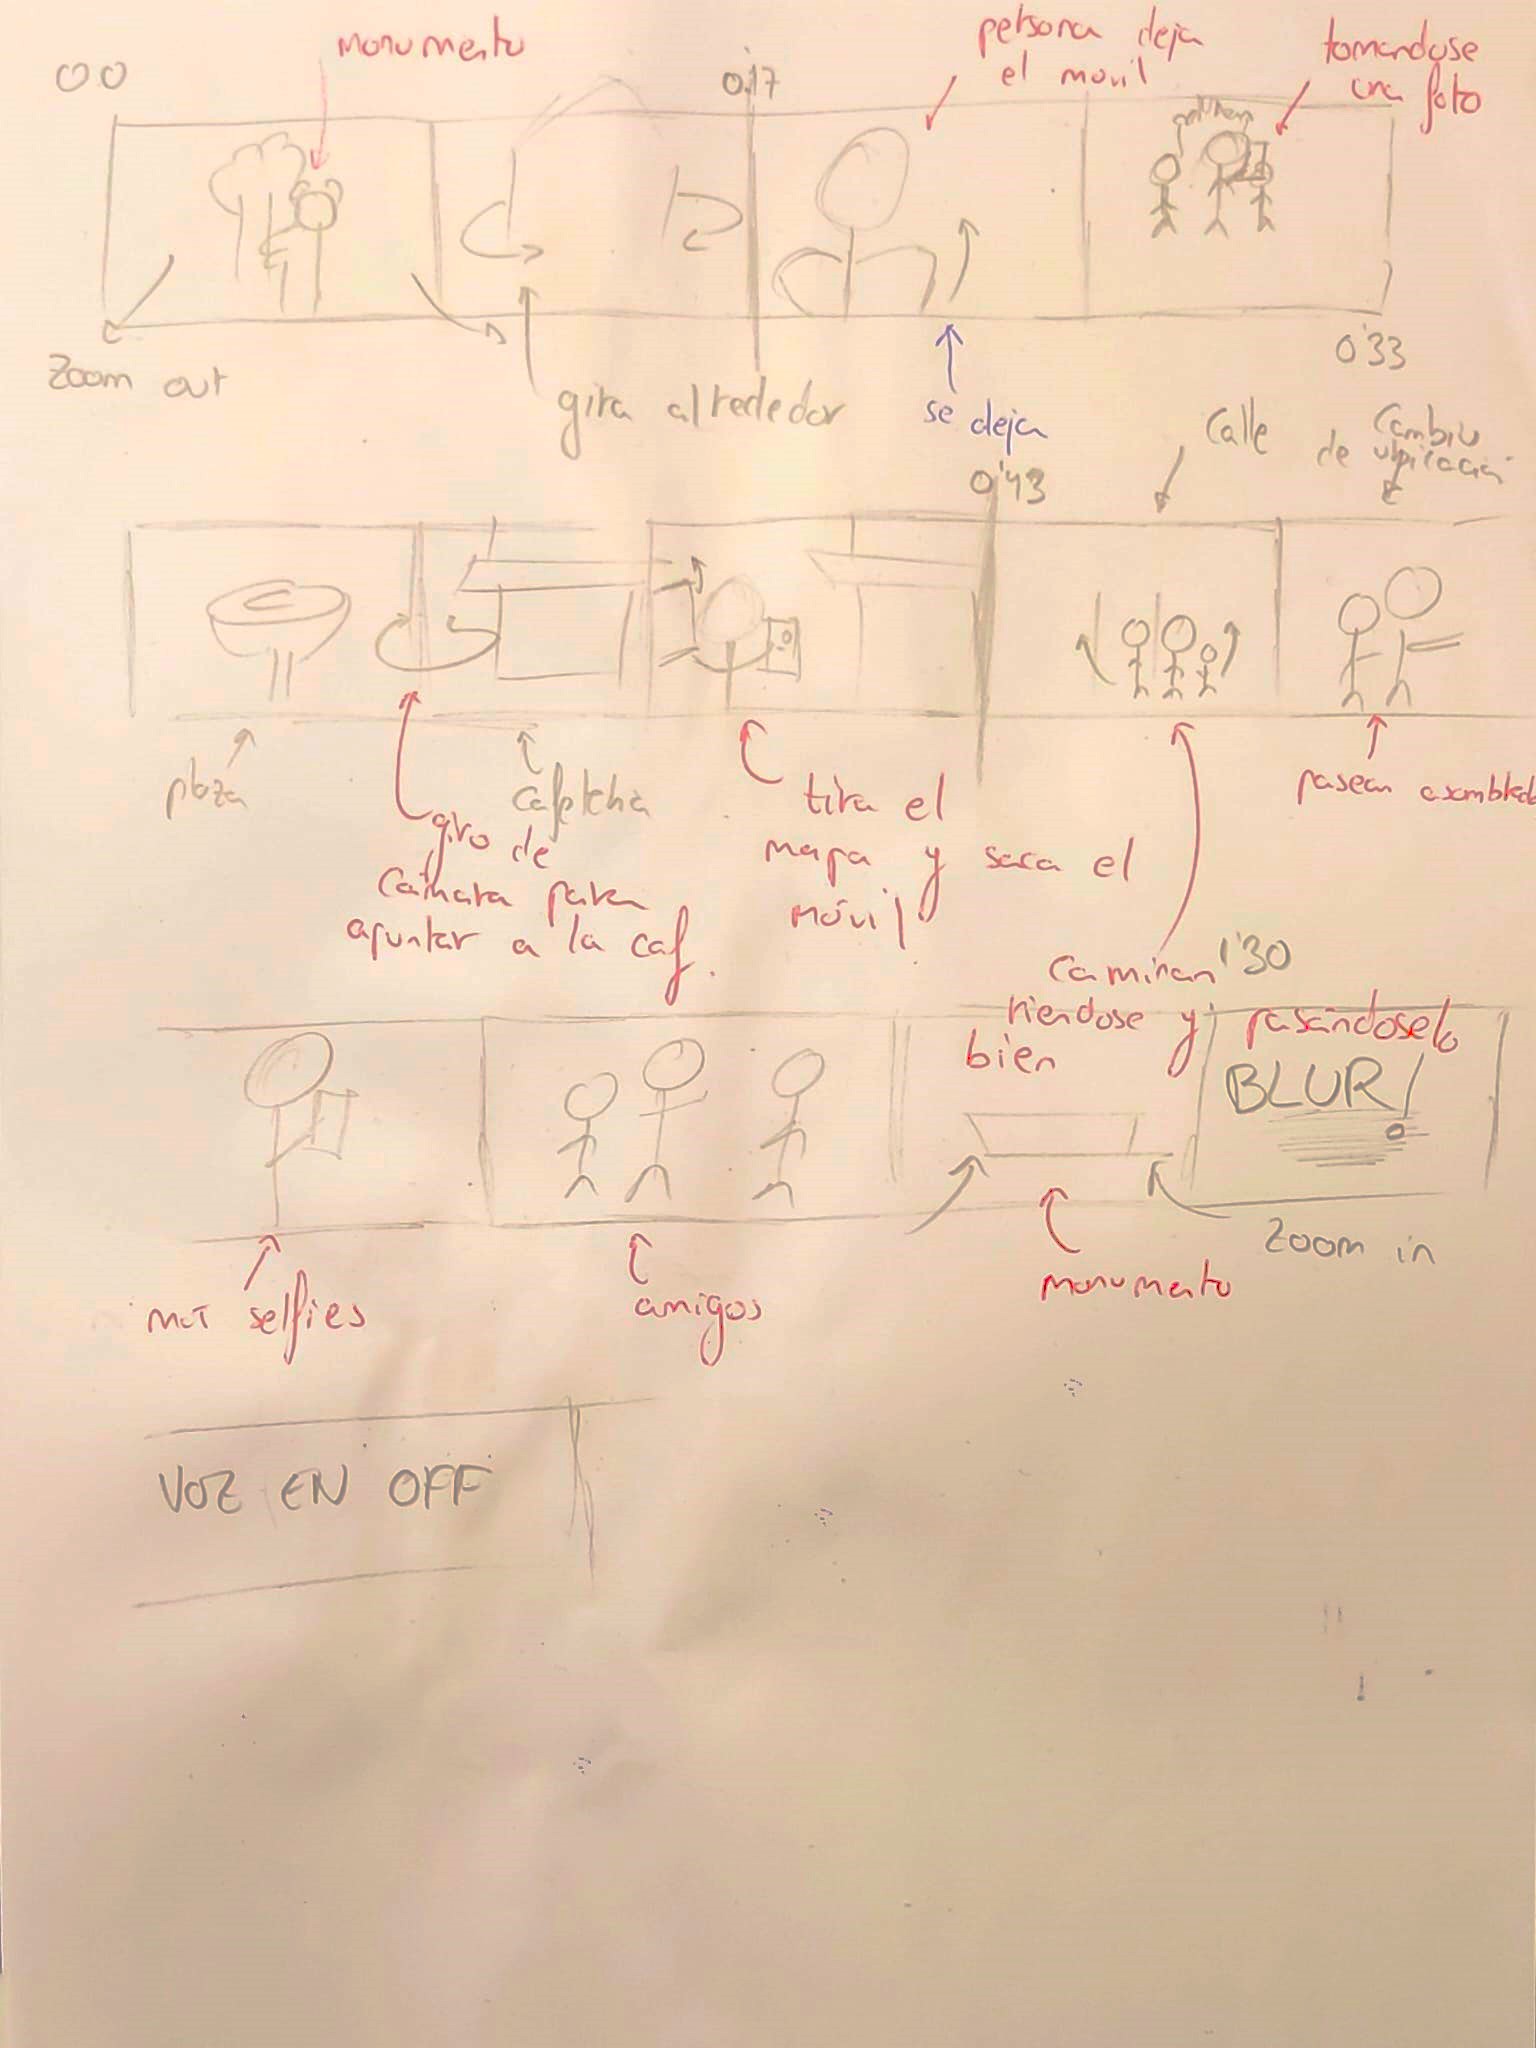 00
monumento
0'17
persona deja
el movil
tomandose
una foto
Zoom out
gira alrededor
se deja
0'33
0'43
Calle
Cambio
de ubicación
plaza
giro de
cámara para
apuntar a la caf.
cafetería
tira el
mapa y saca el
móvil
caminan
riendose y pasándoselo
bien
pasean
1'30
BLUR
selfies
amigos
monumento
Zoom in
VOZ EN OFF